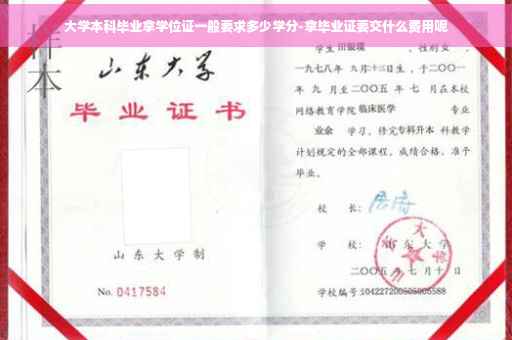 大学本科毕业拿学位证一般要求多少学分-拿毕业证要交什么费用呢
样本
山东大学
毕业证书
山东大学制
No. 0417584
学生 田银瑛 ，性别女，
一九七八年 九月十二日生，于二〇〇一
年 九 月至二〇〇五 年 七 月在本校
网络教育学院 临床医学 专业
业余 学习，修完专科升本 科教学
计划规定的全部课程，成绩合格，准予
毕业。
校 长：
学 校： 山东大学
二〇〇五年七月十日
学校编号:104227200505005588